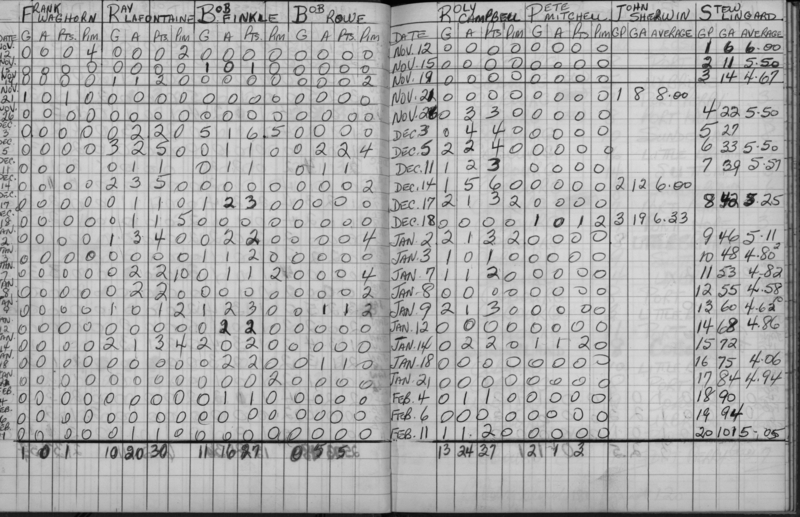 FRANK WAGHORN RAY LAFONTAINE BOB FINKLE BOB ROWE
DATE G A Pts. Pim G A Pts. Pim G A Pts. Pim G A Pts. Pim
NOV. 12 0 0 0 4 0 0 0 2 0 0 0 0 0 0 0 0
NOV. 0 0 0 0 0 0 0 0 1 0 1 0 0 0 0 0
NOV. 0 0 0 0 1 1 2 0 0 0 0 0 0 0 0 2
NOV. 21 1 0 1 0 0 0 0 0 0 0 0 0 0 0 0 0
NOV. 26 0 0 0 0 0 0 0 0 0 0 0 0 0 0 0 0
DEC 3 0 0 0 0 0 2 2 0 5 1 6 5 0 0 0 0
DEC 5 0 0 0 0 3 2 5 0 0 1 1 0 0 2 2 4
DEC. 11 0 0 0 0 0 1 1 0 1 1 0 1 1
DEC. 14 0 0 0 0 2 3 5 0 0 0 0 0 0 0 0 2
DEC. 17 0 0 0 0 0 1 1 0 1 2 3 0 0 0 0
DEC. 18 0 0 0 0 0 1 1 5 0 0 0 0 0 0 0 0
JAN. 2 0 0 0 0 1 3 4 0 0 2 2 0 0 0 0 4
JAN 3 0 0 0 0 0 0 0 0 1 1 2 0 0 0 0 0
JAN. 7 0 0 0 0 0 2 2 10 0 1 1 2 0 0 0 4
JAN 8 0 0 0 0 0 2 2 0 0 0 0 0 0 0 0 2
JAN. 9 0 0 0 0 1 0 1 2 1 2 3 0 0 1 1 2
JAN 12 0 0 0 0 0 0 0 0 0 2 2 0 0 0 0 0
JAN 14 0 0 0 0 2 1 3 4 2 0 2 0 0 0 0 0
JAN. 18 0 0 0 0 0 0 0 0 0 2 2 0 0 1 1 0
JAN 0 0 0 0 0 0 0 0 0 0 0 2 0 0 0 0
FEB. 4 0 0 0 0 0 0 0 0 0 1 1 0 0 0 0 0
FEB. 6 0 0 0 0 0 0 0 0 0 0 0 0 0 0 0 0
FEB. 0 0 0 0 0 1 1 0 0 0 0 0 0 0 0 0
1 0 1 10 20 30 11 16 27 0 5 5
ROLY CAMPBELL PETE MITCHELL JOHN SHERWIN STEW LINGARD
DATE G A Pts Pim G A Pts Pim GP GA AVERAGE GP GA AVERAGE
NOV. 12 0 0 0 0 0 0 0 0 1 6 6.00
NOV. 15 0 0 0 0 0 0 0 0 2 11 5.50
NOV. 19 0 0 0 0 0 0 0 0 3 14 4.67
NOV. 21 0 0 0 0 0 0 0 0 1 8 8.00
NOV. 26 0 3 3 0 0 0 0 0 4 22 5.50
DEC. 3 0 4 4 0 0 0 0 0 5 27
DEC. 5 2 2 4 0 0 0 0 0 6 33 5.50
DEC. 11 1 2 3 0 0 0 0 7 39 5.57
DEC. 14 1 5 6 0 0 0 0 0 2 12 6.00
DEC. 17 2 1 3 2 0 0 0 0 8 42 5.25
DEC. 18 0 0 0 0 1 0 1 2 3 19 6.33
JAN. 2 2 1 3 2 0 0 0 0 9 46 5.11
JAN. 3 1 0 1 0 0 0 0 0 10 48 4.80
JAN. 7 1 1 2 0 0 0 0 0 11 53 4.82
JAN. 8 0 0 0 0 0 0 0 0 12 55 4.58
JAN. 9 2 1 3 0 0 0 0 0 13 60 4.62
JAN. 12 0 0 0 0 0 0 0 0 14 68 4.86
JAN. 14 0 2 2 0 1 1 2 0 15 72
JAN. 18 0 0 0 0 0 0 0 0 16 75 4.06
JAN. 21 0 0 0 0 0 0 0 0 17 84 4.94
FEB. 4 0 1 1 0 0 0 0 0 18 90
FEB. 6 0 0 0 0 0 0 0 0 19 94
FEB. 11 1 1 2 0 0 0 0 0 20 101 5.05
13 24 27 2 1 2